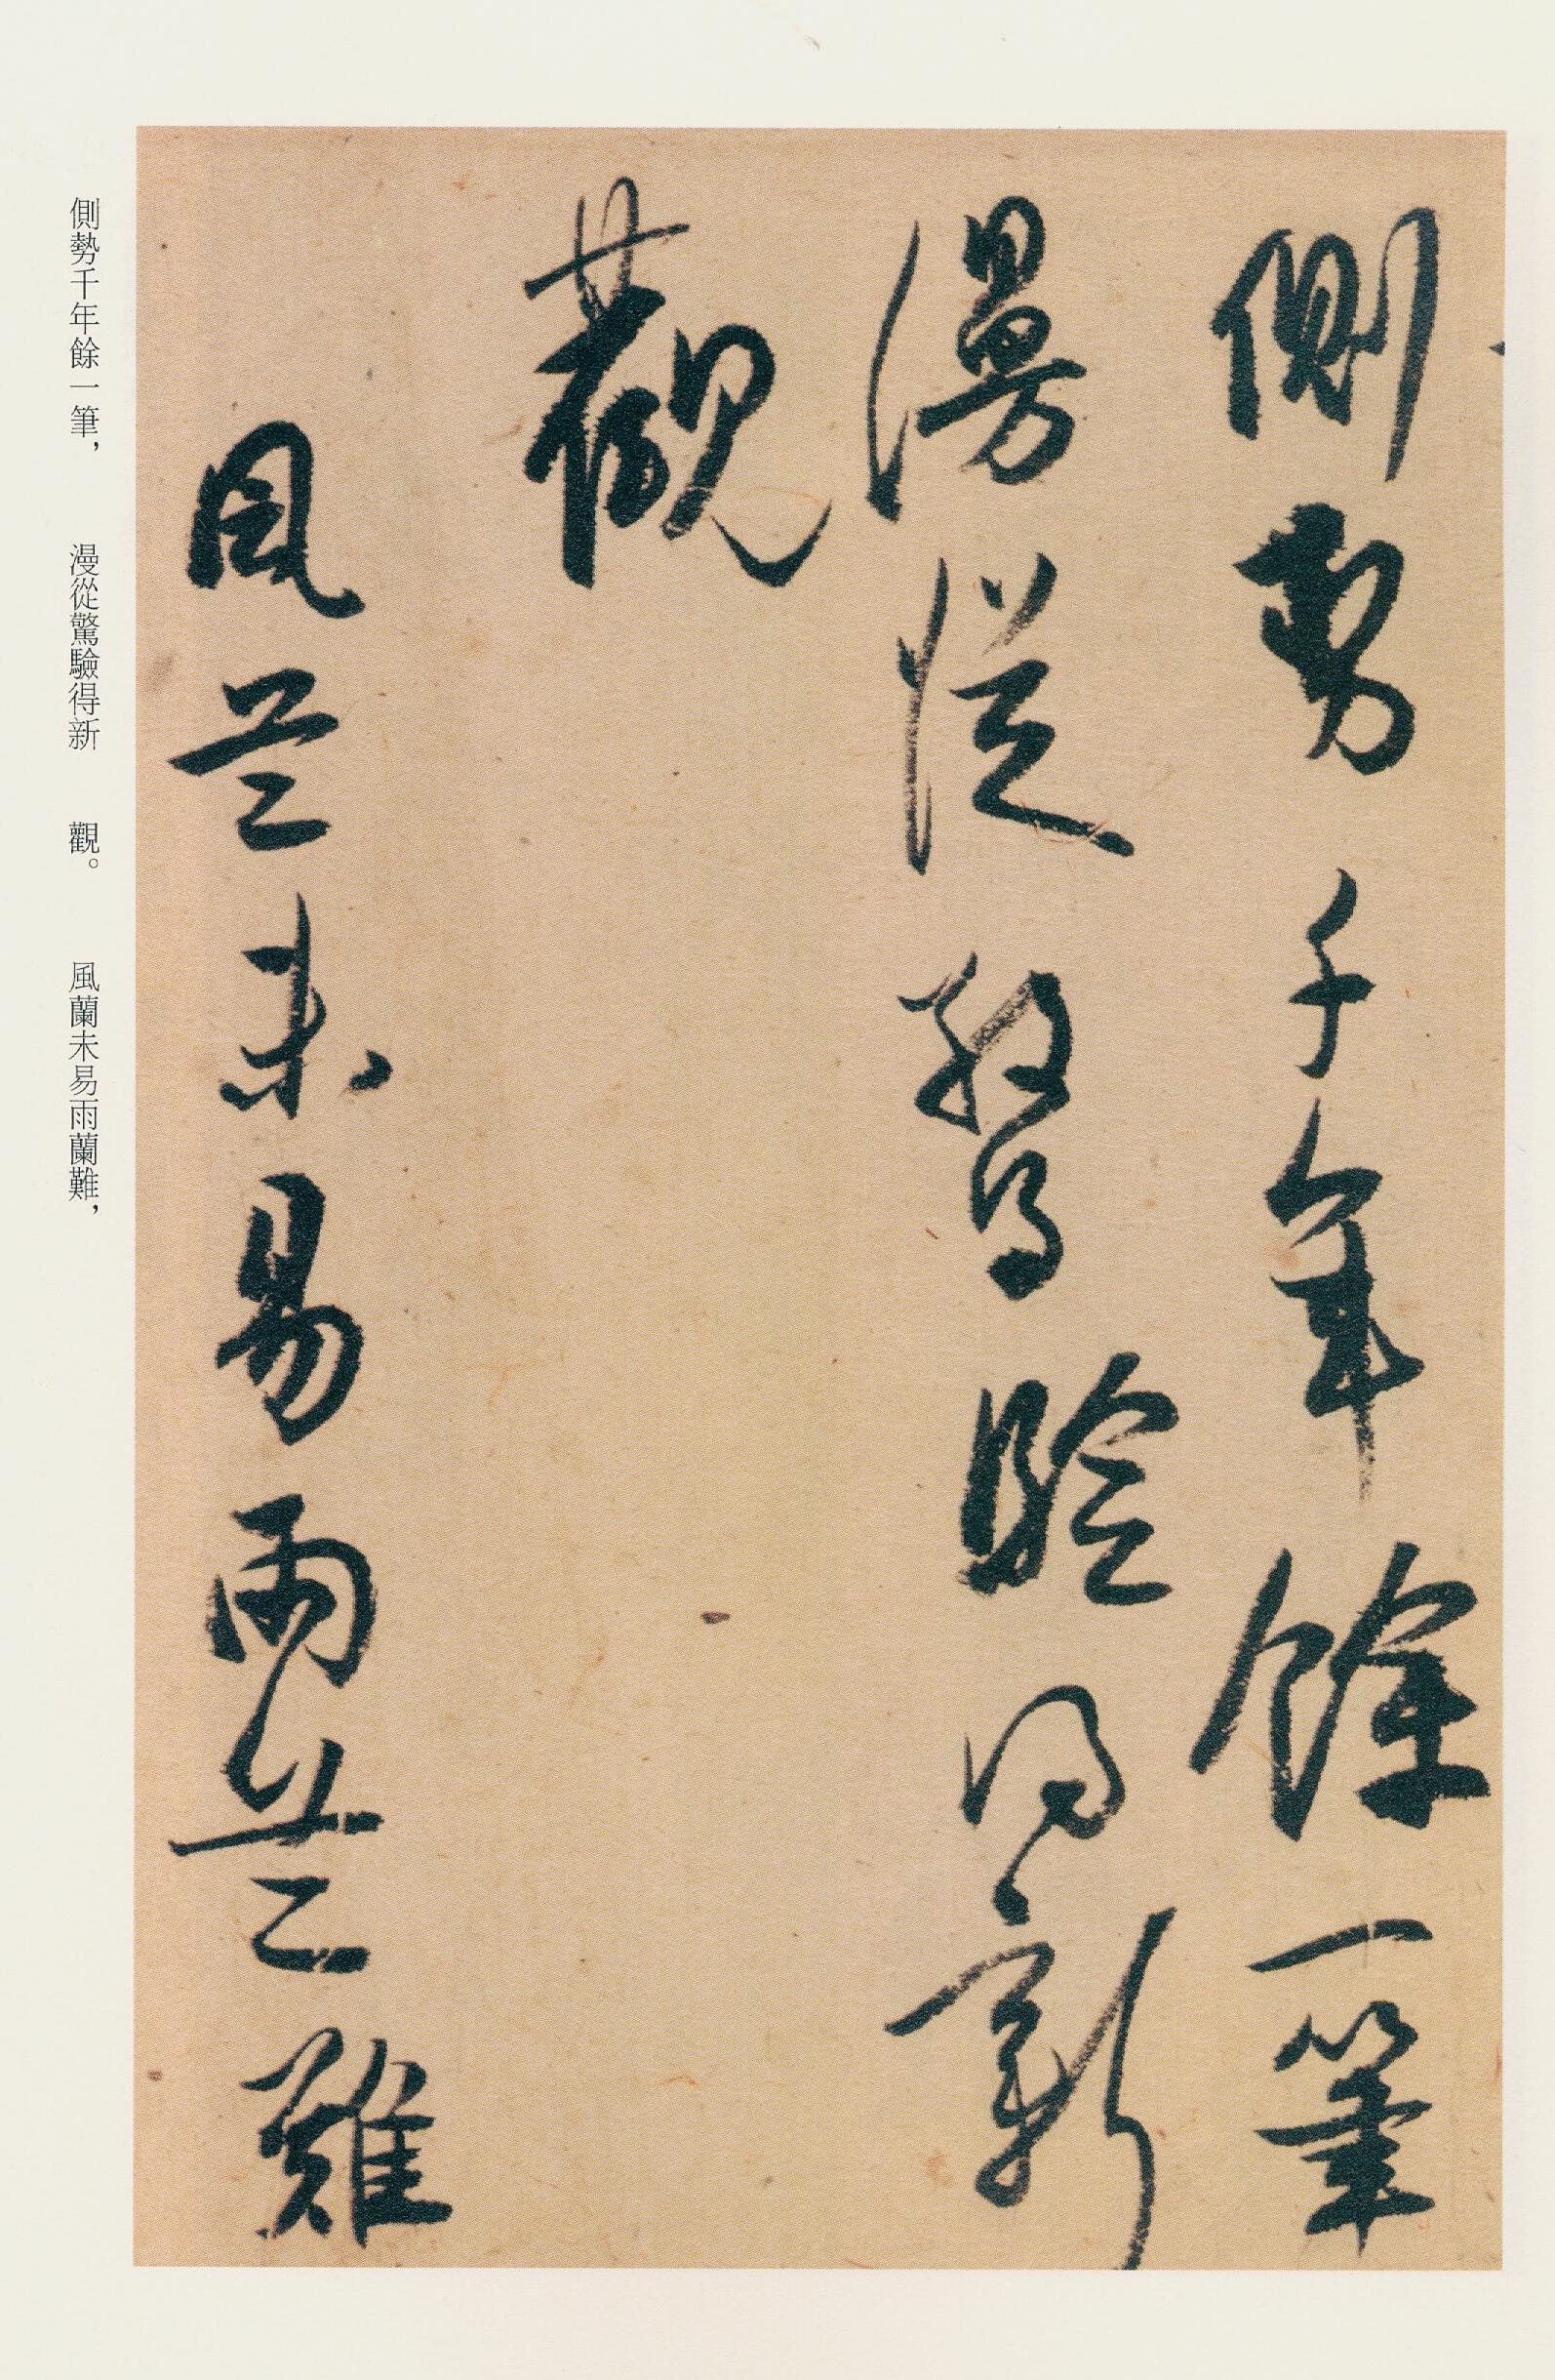 側勢千年餘一筆
漫從驚驗得新
觀
風蘭未易雨蘭難
側勢千年餘一筆，　漫從驚驗得新　觀。　風蘭未易雨蘭難，